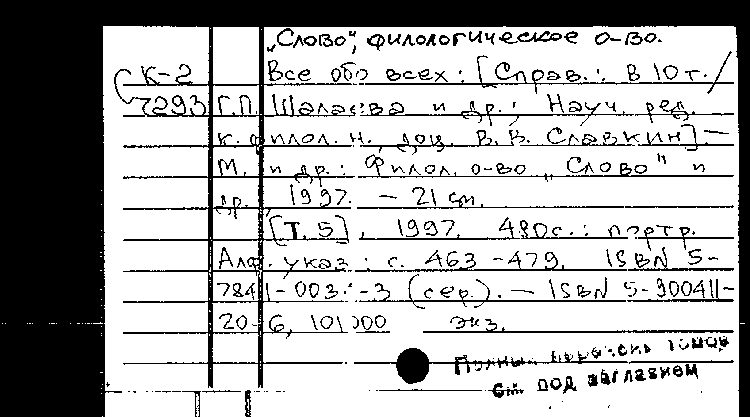 „Слово“, филологическое о-во.
К-2 Все обо всех: [Справ.: В 10 т./
7293 Г.П. Шалаева и др.; Науч. ред.
к. филол. н., доц. В. В. Славкин]. —
М. и др.: Филол. о-во „Слово“ и
др., 1997. — 21 см.
[Т. 5], 1997. 480с.: портр.
Алф. указ.: с. 463-479. ISBN 5-
7841-003 -3 (сер.). — ISBN 5-900411-
20-6, 101000 экз.
Полный перечень томов
см. под заглавием